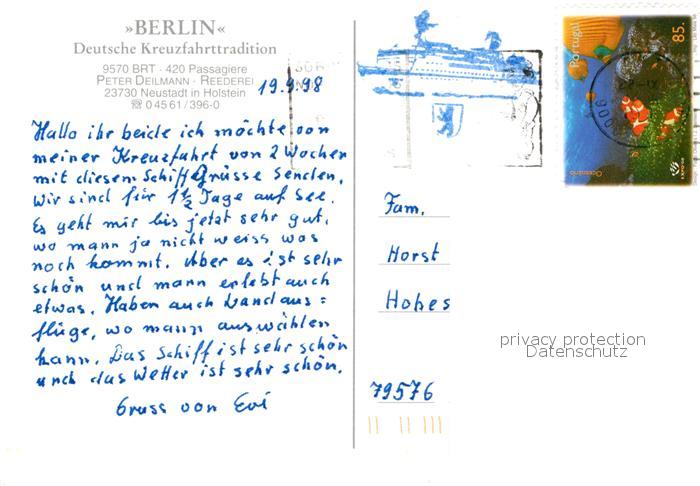 »BERLIN«
Deutsche Kreuzfahrttradition
9570 BRT · 420 Passagiere
PETER DEILMANN · REEDEREI
23730 Neustadt in Holstein
☎ 0 45 61 / 396-0
19.9.98
Hallo ihr beide ich möchte von
meiner Kreuzfahrt von 2 Wochen
mit diesem Schiff Grüsse senden.
Wir sind für 1½ Tage auf See.
Es geht mir bis jetzt sehr gut,
wo mann ja nicht weiss was
noch kommt. Aber es ist sehr
schön und mann erlebt auch
etwas. Haben auch Landaus=
flüge, wo mann auswählen
kann. Das Schiff ist sehr schön
und das Wetter ist sehr schön.
Gruss von Evi
Portugal
85.
Oceanário
Fam.
Horst
Hohes
privacy protection
Datenschutz
79576